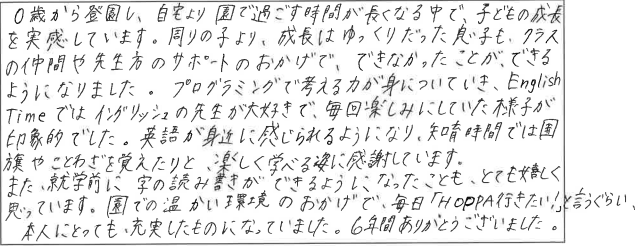 0歳から登園し、自宅より園で過ごす時間が長くなる中で、子どもの成長
を実感しています。周りの子より、成長はゆっくりだった息子も、クラス
の仲間や先生方のサポートのおかげで、できなかったことが、できる
ようになりました。プログラミングで考える力が身についていき、English
Timeではイングリッシュの先生が大好きで、毎回楽しみにしていた様子が
印象的でした。英語が身近に感じられるようになり、知育時間では国
旗やことわざを覚えたりと、楽しく学べる姿に感謝しています。
また、就学前に字の読み書きができるようになったことも、とても嬉しく
思っています。園での温かい環境のおかげで、毎日「HOPPA行きたい!」と言うぐらい、
本人にとっても、充実したものになっていました。6年間ありがとうございました。